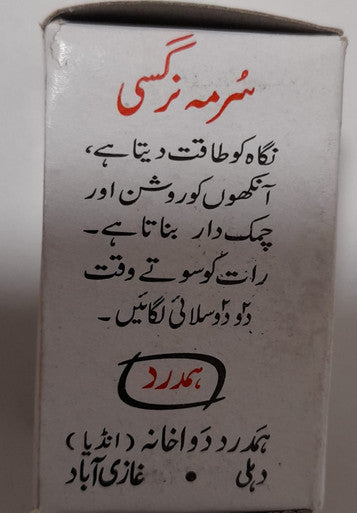 سُرمہ نرگسی
نگاہ کو طاقت دیتا ہے،
آنکھوں کو روشن اور
چمک دار بناتا ہے۔
رات کو سوتے وقت
دُو دُو سلائی لگائیں۔
ہمدرد
ہمدرد دواخانہ (انڈیا)
دہلی • غازی آباد